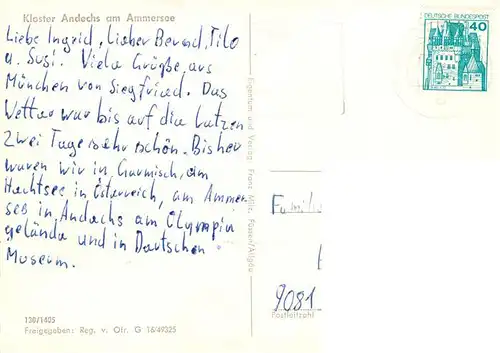 Kloster Andechs am Ammersee
Liebe Ingrid, Lieber Bernd, Tilo
u. Susi. Viele Grüße, aus
München von Siegfried. Das
Wetter war bis auf die letzen
zwei Tage sehr schön. Bisher
waren wir in Garmisch, am
Hechtsee in Österreich, am Ammer
see in Andechs am Olympia
gelände und in Deutschen
Museum.
130/1405
Freigegeben: Reg. v. Ofr. G 16/49325
Eigentum und Verlag: Franz Milz, Füssen/Allgäu
DEUTSCHE BUNDESPOST
40
Familie
9081
Postleitzahl